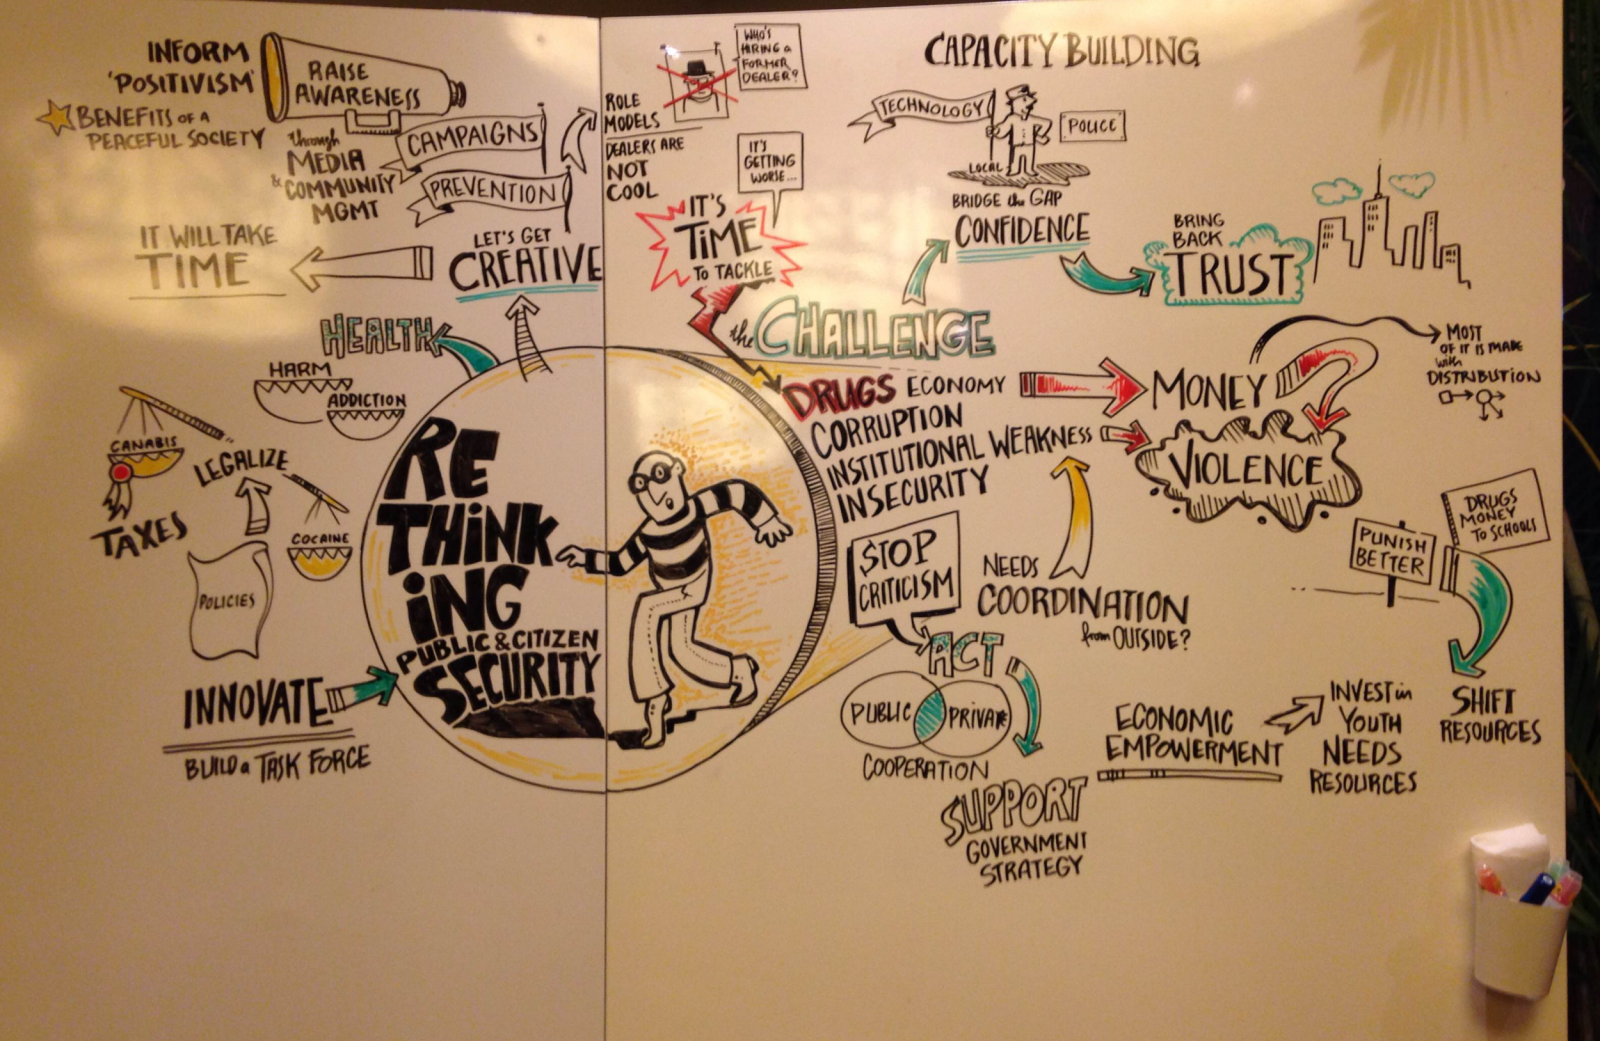 INFORM
'POSITIVISM'
BENEFITS OF A
PEACEFUL SOCIETY
RAISE
AWARENESS
through
MEDIA
& COMMUNITY
MGMT
CAMPAIGNS
PREVENTION
IT WILL TAKE
TIME
LET'S GET
CREATIVE
ROLE
MODELS
DEALERS ARE
NOT
COOL
WHO'S
HIRING a
FORMER
DEALER?
IT'S
GETTING
WORSE...
IT'S
TiME
TO TACKLE
the CHALLENGE
CAPACITY BUILDING
TECHNOLOGY
POLICE
LOCAL
BRIDGE the GAP
CONFIDENCE
BRING
BACK
TRUST
HEALTH
HARM
ADDICTION
CANABIS
LEGALIZE
TAXES
COCAINE
POLICIES
INNOVATE
BUILD a TASK FORCE
RE
THiNK
iNG
PUBLIC & CITIZEN
SECURITY
DRUGS ECONOMY
CORRUPTION
INSTITUTIONAL WEAKNESS
INSECURITY
MONEY
MOST
OF IT IS MADE
with
DISTRIBUTION
VIOLENCE
STOP
CRITICISM
NEEDS
COORDINATION
from OUTSIDE?
ACT
PUBLIC
PRIVATE
COOPERATION
SUPPORT
GOVERNMENT
STRATEGY
ECONOMIC
EMPOWERMENT
INVEST in
YOUTH
NEEDS
RESOURCES
PUNISH
BETTER
DRUGS
MONEY
TO SCHOOLS
SHIFT
RESOURCES